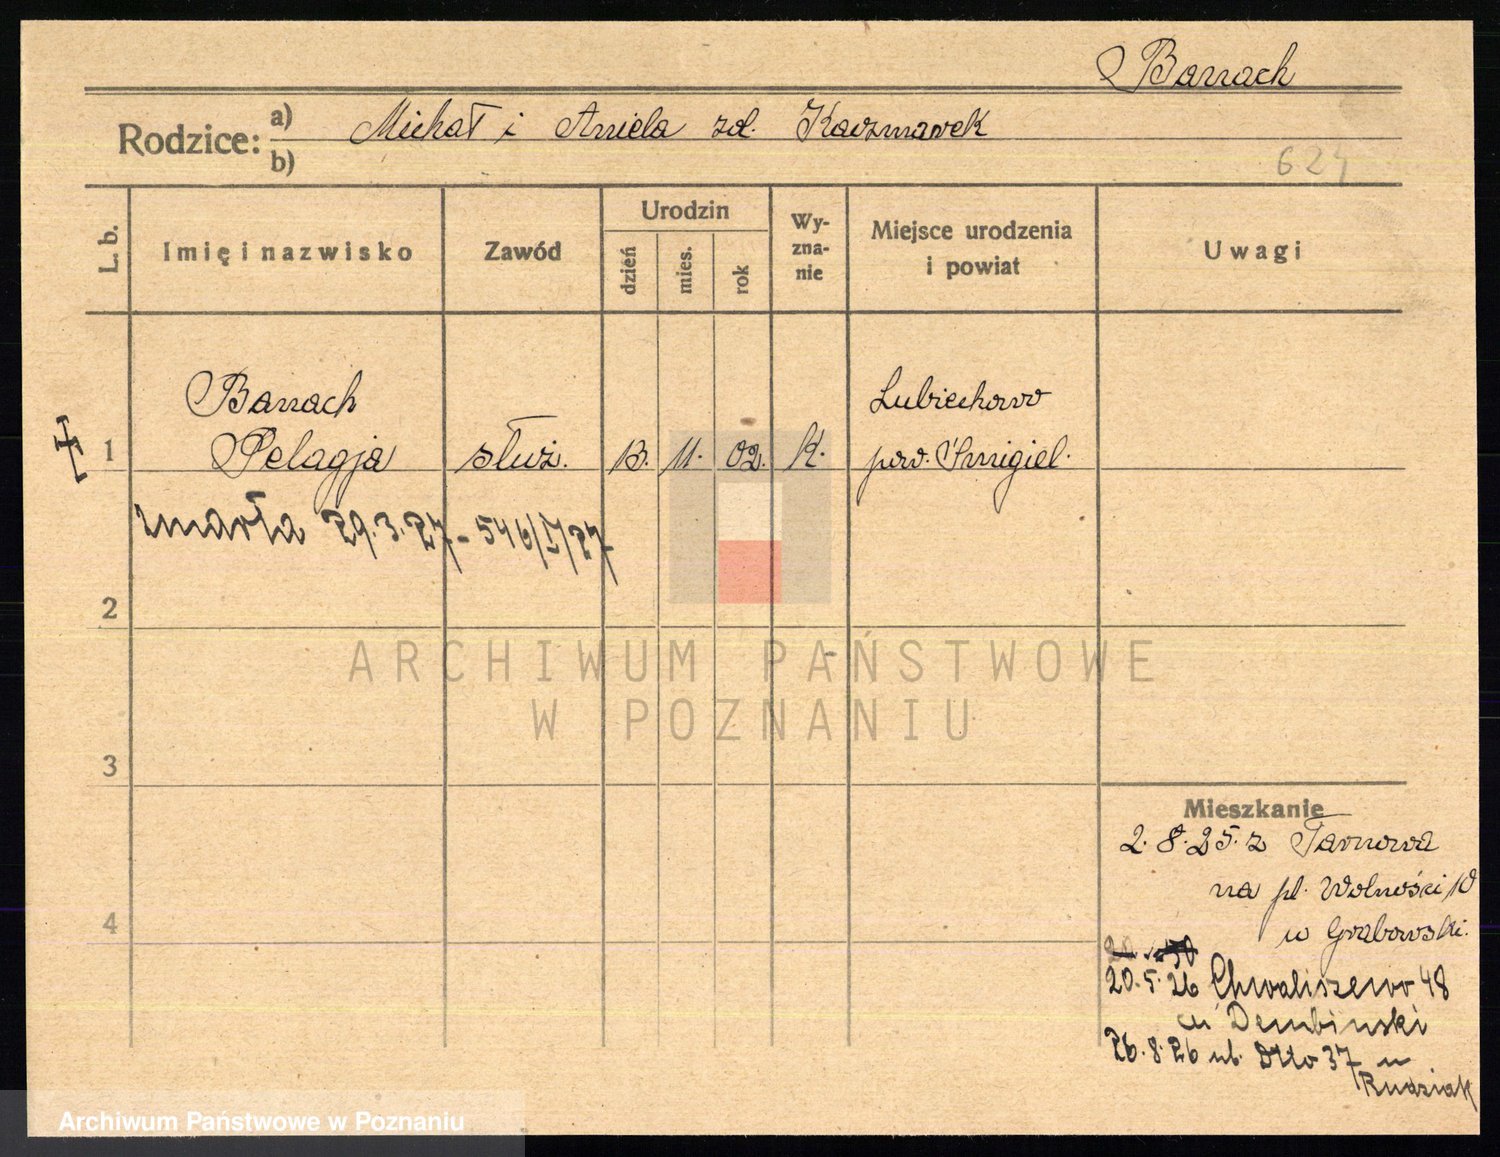 Barrach
Rodzice: a) Michał i Aniela zd. Kaczmarek
b)
624
L. b.
Imię i nazwisko
Zawód
Urodzin
dzień
mies.
rok
Wy-
zna-
nie
Miejsce urodzenia
i powiat
Uwagi
Barrach
Lubiechowo
1 Pelagja służ. 13. 11. 02. K. pow. Śmigiel.
zmarła 29.3.27 - 546/I/27
2
ARCHIWUM PAŃSTWOWE
W POZNANIU
3
Mieszkanie
2.8.25. z Tarnowa
na pl. Wolności 10
u Grabowski.
4
20.5.26 Chwaliszewo 48
u Dembinski
26.8.26 ul. Dtto 37 u
Rudziak
Archiwum Państwowe w Poznaniu